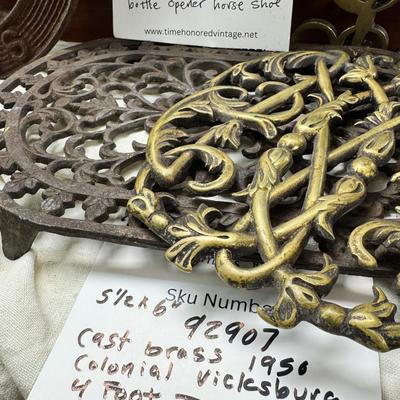 bottle opener horse shoe
www.timehonoredvintage.net
Sku Number
5 1/2 x 6"
92907
Cast brass 1950
Colonial Vicksburg
4 Foot